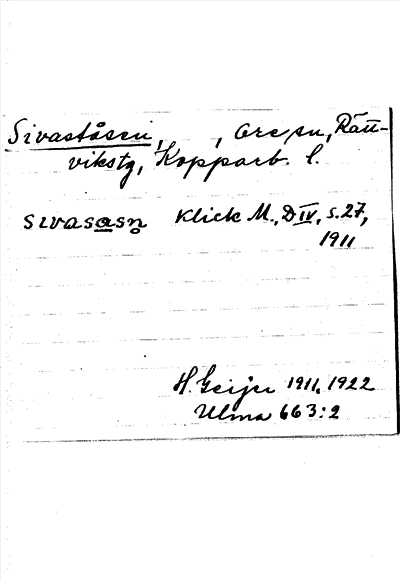 Sivaståsen, , Ore sn, Rätt-
vikstg, Kopparb. l.
sıvasasn̥ Klick M., D IV, s. 27,
1911
H. Geijer 1911, 1922
Ulma 663:2